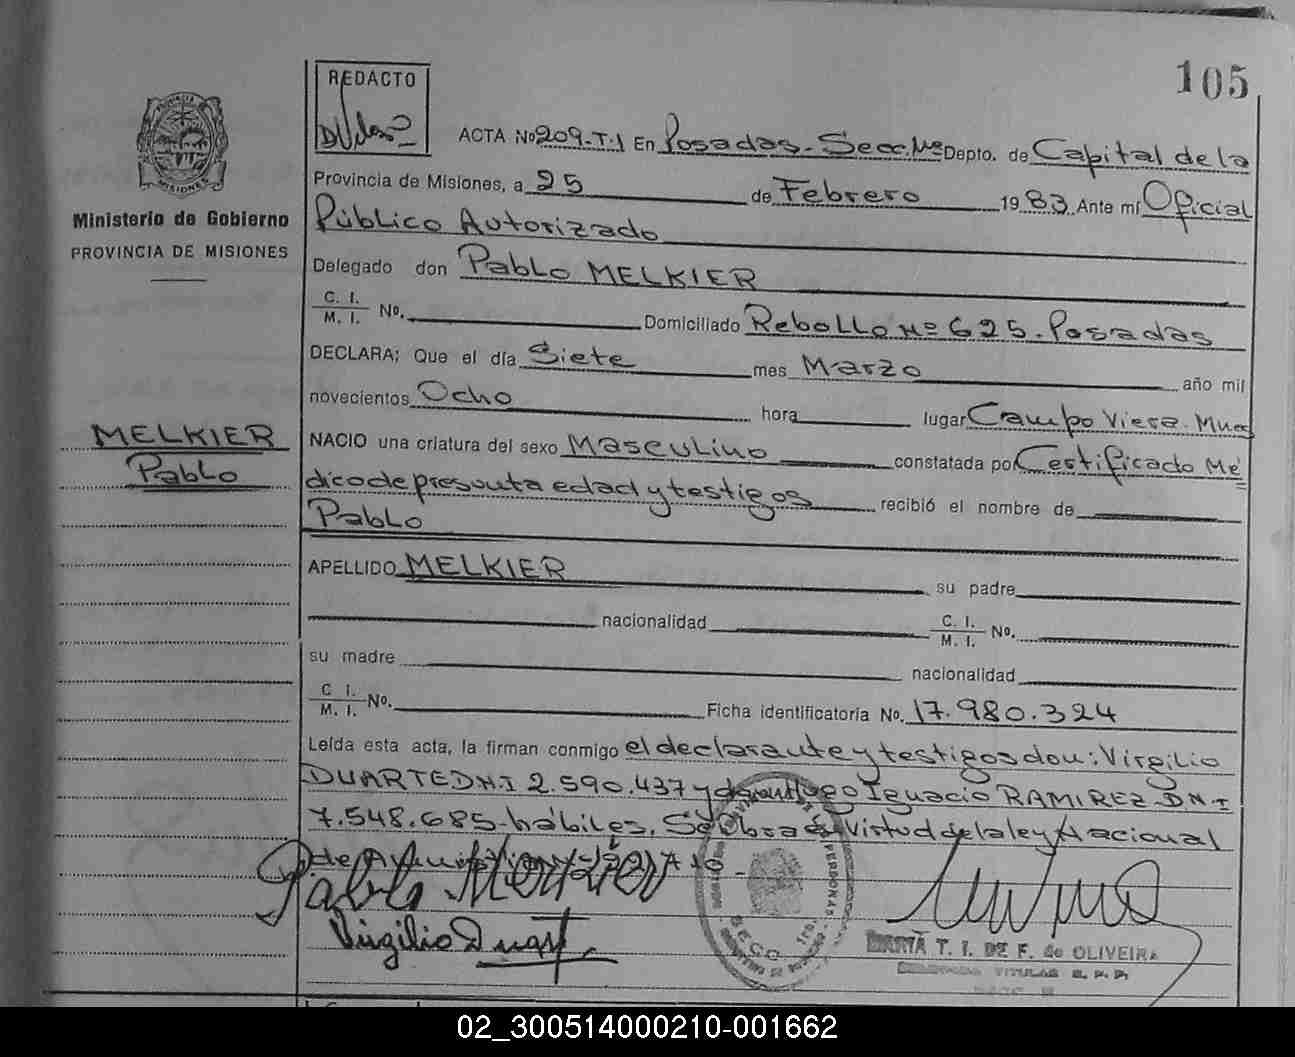 105
REDACTO
ACTA Nº 209-T.1 En Posadas - Secc. Depto. de Capital de la
Provincia de Misiones, a 25 de Febrero 1983 Ante mí Oficial
Ministerio de Gobierno
PROVINCIA DE MISIONES
Público Autorizado
Delegado don Pablo MELKIER
C. I.
M. I. Nº. Domiciliado Rebollo Nº 625. Posadas
DECLARA; Que el día Siete mes Marzo año mil
novecientos Ocho hora lugar Campo Viera.
MELKIER
Pablo
NACIO una criatura del sexo Masculino constatada por Certificado Mé
dico de presunta edad y testigos recibió el nombre de
Pablo
APELLIDO MELKIER su padre
nacionalidad C. I.
M. I. Nº.
su madre nacionalidad
C. I.
M. I. Nº. Ficha identificatoria No. 17.980.324
Leída esta acta, la firman conmigo el declarante y testigos don: Virgilio
DUARTE D.N.I 2.590.437 y Ignacio RAMIREZ D.N.I
7.548.685 hábiles. Se Virtud de la ley Nacional
de
Pablo
Virgilio Duart
MARTA T. I. DE F. de OLIVEIRA
02_300514000210-001662